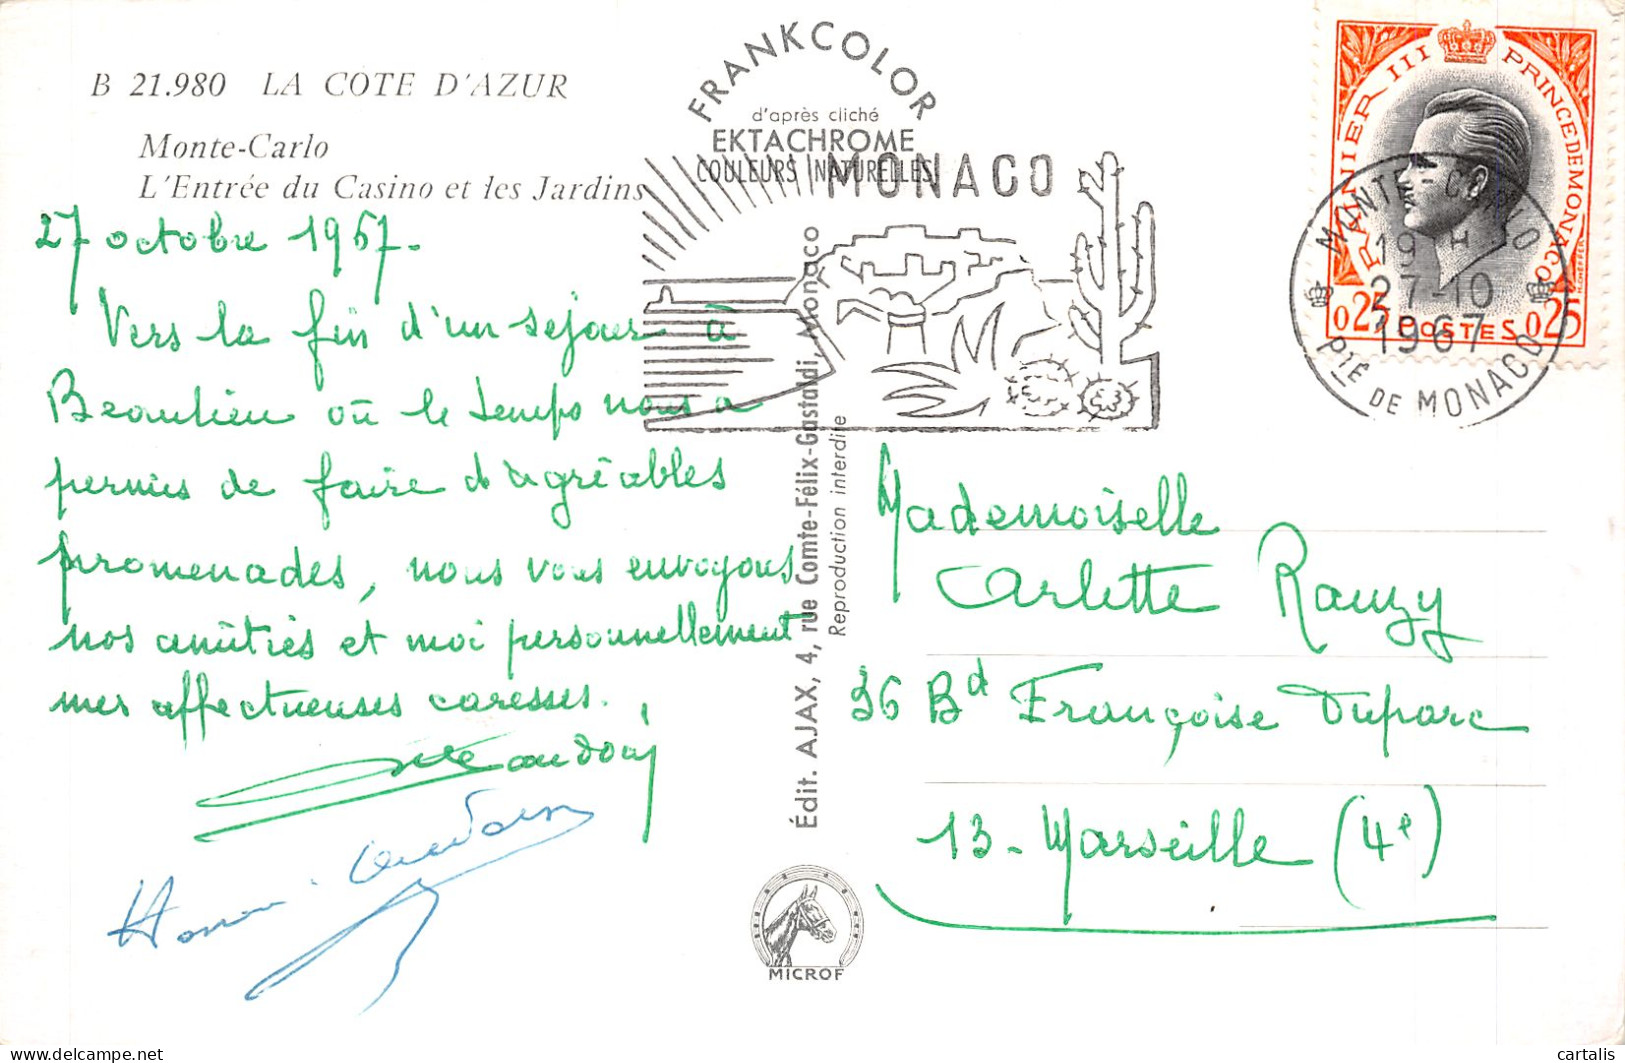 B 21.980 LA COTE D'AZUR
Monte-Carlo
L'Entrée du Casino et les Jardins
27 octobre 1967.
Vers la fin d'un sejour à
Beaulieu où le temps nous a
permis de faire d'agréables
promenades, nous vous envoyons
nos amitiés et moi personnellement
mes affectueuses caresses.
FRANKCOLOR
d'après cliché
EKTACHROME
COULEURS NATURELLES
MONACO
Édit. AJAX, 4, rue Comte-Félix-Gastaldi, Monaco
Reproduction interdite
MICROF
RAINIER III PRINCE DE MONACO
0.25 POSTES 0.25
MONTE-CARLO
19 H
27-10
1967
PTÉ DE MONACO
Mademoiselle
Arlette Rauzy
36 Bd Françoise Duparc
13 - Marseille (4e)
cartalis